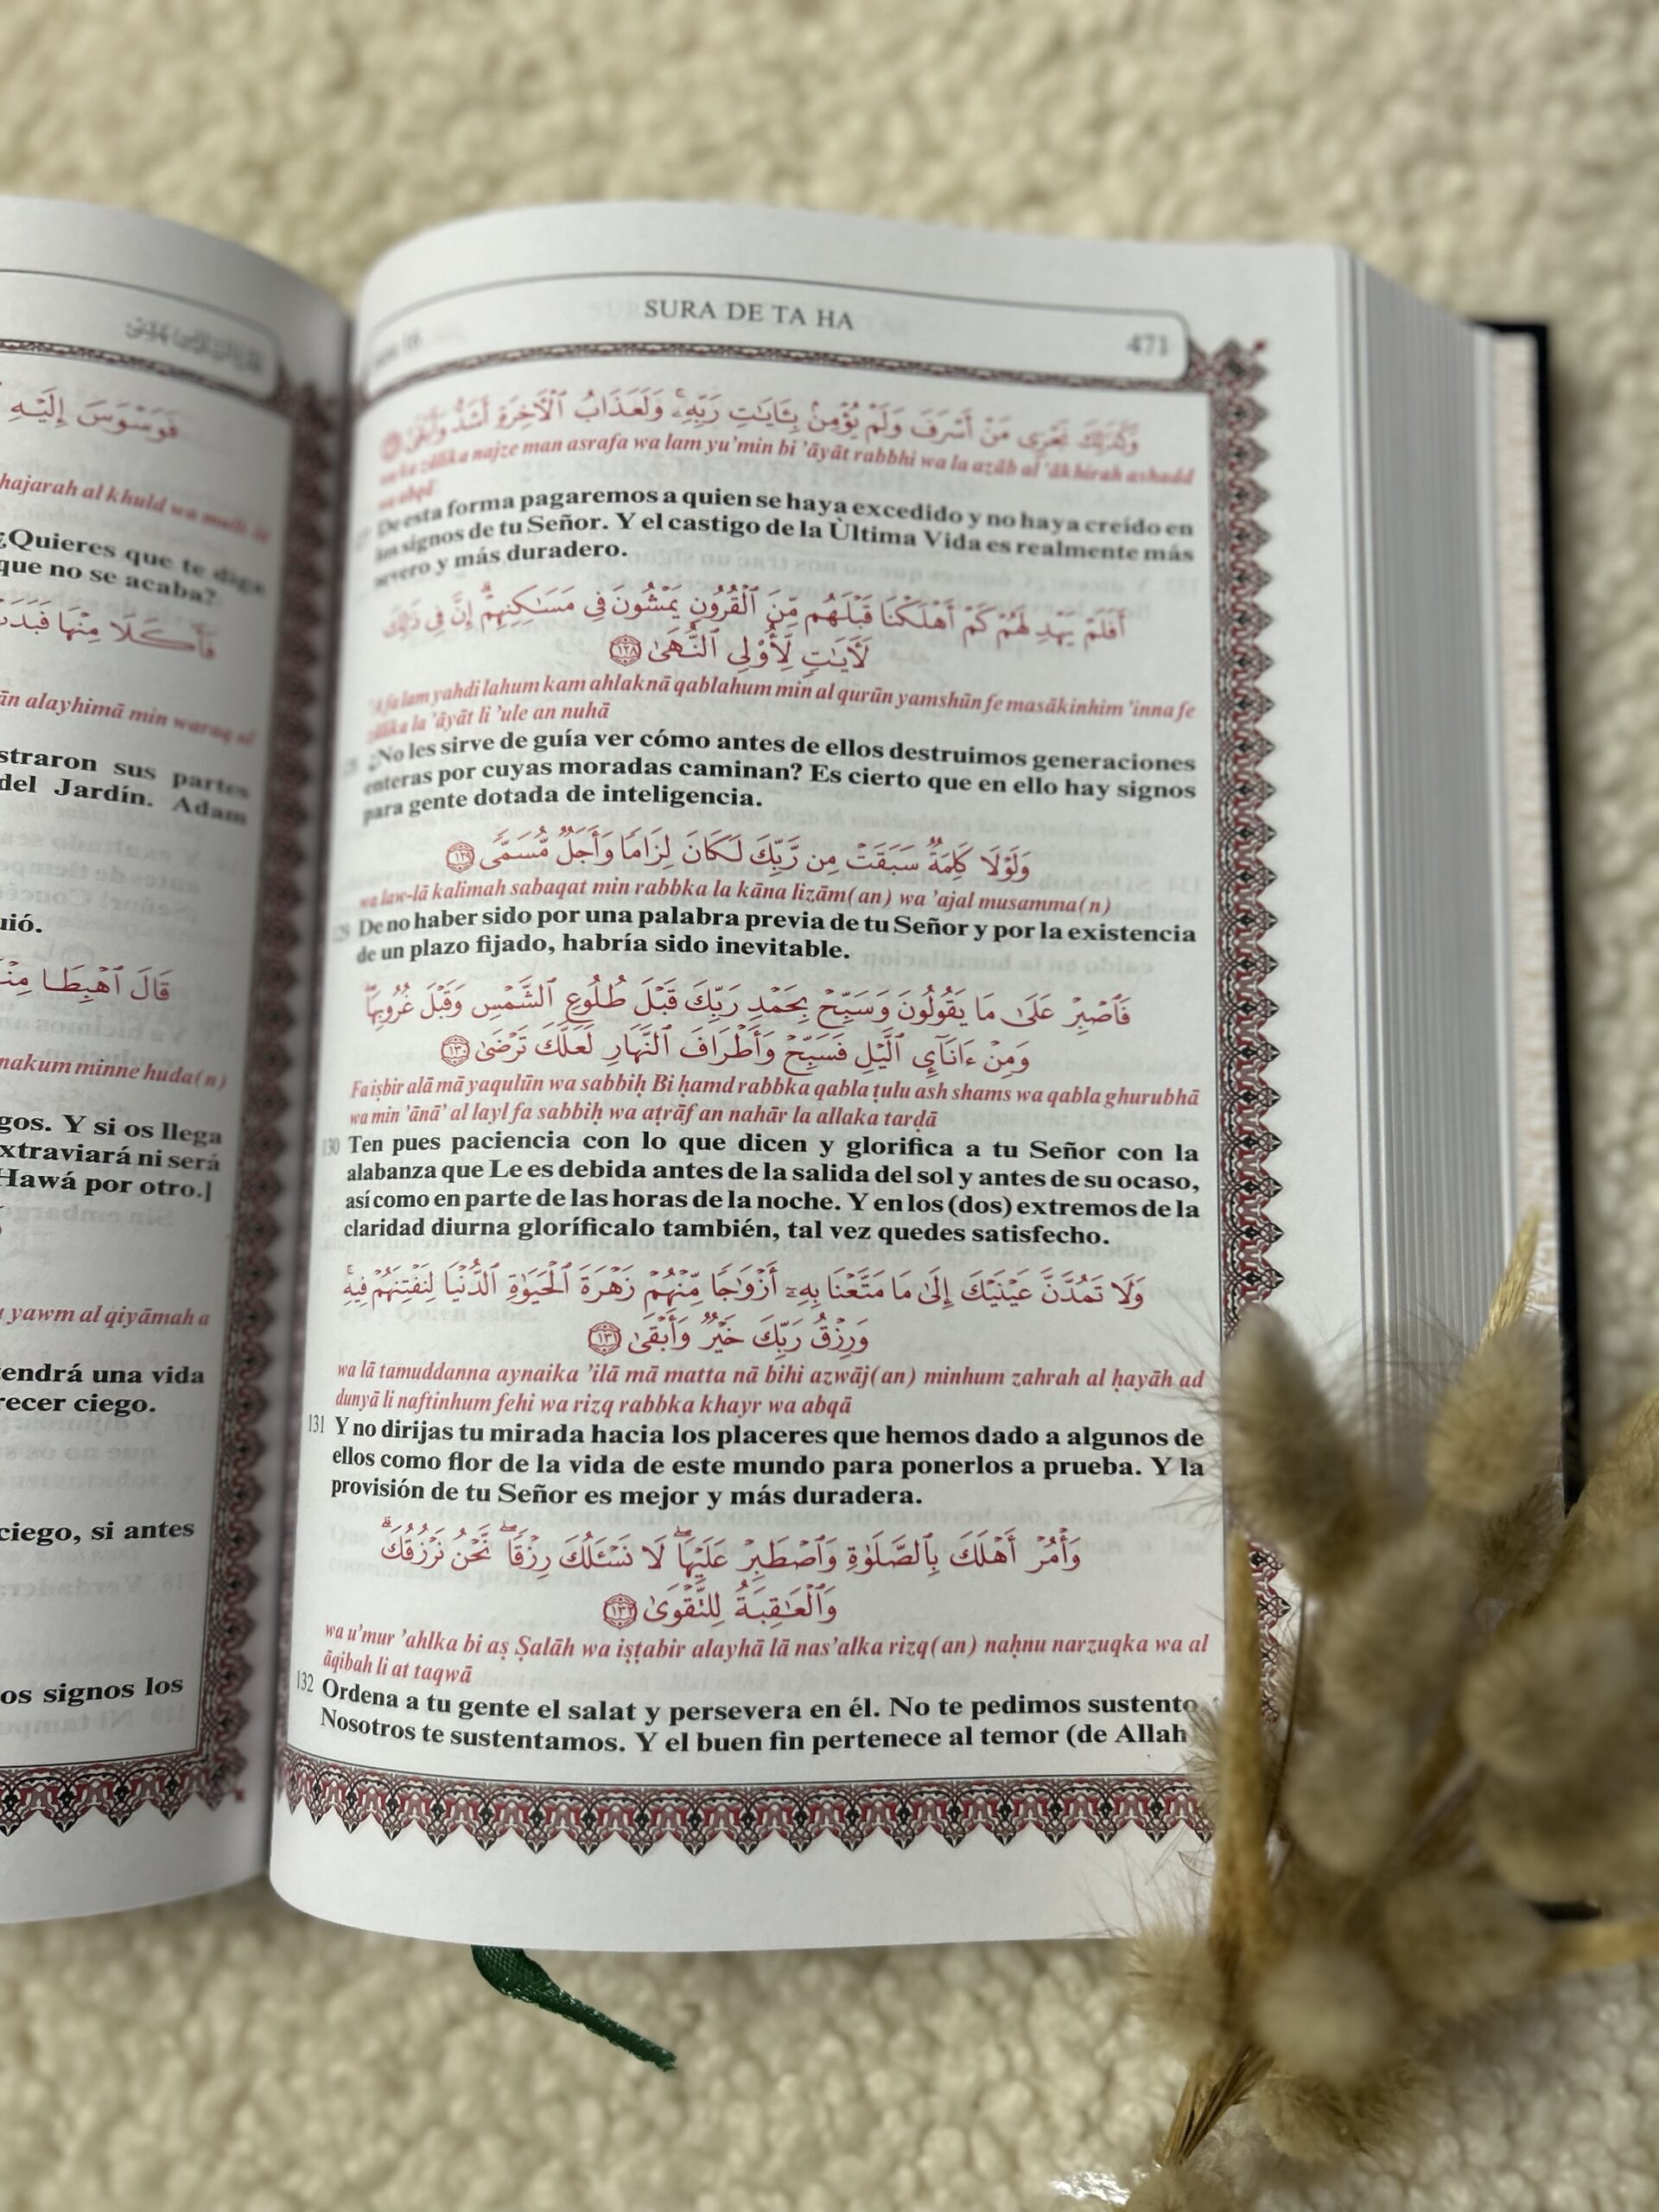 فَوَسْوَسَ إِلَيْهِ
hajarah al khuld wa mulk
¿Quieres que te diga
que no se acaba?
فَأَكَلَا مِنْهَا فَبَدَتْ
ān alayhimā min waraq al
straron sus partes
del Jardín. Adam
uió.
قَالَ ٱهْبِطَا
nakum minne huda(n)
gos. Y si os llega
xtraviará ni será
Hawá por otro.]
yawm al qiyāmah a
tendrá una vida
recer ciego.
ciego, si antes
os signos los
SURA DE TA HA
471
وَكَذَٰلِكَ نَجْزِى مَنْ أَسْرَفَ وَلَمْ يُؤْمِنۢ بِـَٔايَـٰتِ رَبِّهِۦ ۚ وَلَعَذَابُ ٱلْـَٔاخِرَةِ أَشَدُّ وَأَبْقَىٰٓ
wa ka zālika najze man asrafa wa lam yu’min bi ’āyāt rabbhi wa la azāb al ’ākhirah ashadd
wa abqā
De esta forma pagaremos a quien se haya excedido y no haya creído en
los signos de tu Señor. Y el castigo de la Ùltima Vida es realmente más
severo y más duradero.
أَفَلَمْ يَهْدِ لَهُمْ كَمْ أَهْلَكْنَا قَبْلَهُم مِّنَ ٱلْقُرُونِ يَمْشُونَ فِى مَسَـٰكِنِهِمْ ۗ إِنَّ فِى ذَٰلِكَ
لَـَٔايَـٰتٍ لِّأُو۟لِى ٱلنُّهَىٰ ١٢٨
’A fa lam yahdi lahum kam ahlaknā qablahum min al qurūn yamshūn fe masākinhim ’inna fe
zālika la ’āyāt li ’ule an nuhā
¿No les sirve de guía ver cómo antes de ellos destruimos generaciones
enteras por cuyas moradas caminan? Es cierto que en ello hay signos
para gente dotada de inteligencia.
وَلَوْلَا كَلِمَةٌ سَبَقَتْ مِن رَّبِّكَ لَكَانَ لِزَامًا وَأَجَلٌ مُّسَمًّى ١٢٩
wa law-lā kalimah sabaqat min rabbka la kāna lizām(an) wa ’ajal musamma(n)
De no haber sido por una palabra previa de tu Señor y por la existencia
de un plazo fijado, habría sido inevitable.
فَٱصْبِرْ عَلَىٰ مَا يَقُولُونَ وَسَبِّحْ بِحَمْدِ رَبِّكَ قَبْلَ طُلُوعِ ٱلشَّمْسِ وَقَبْلَ غُرُوبِهَا ۖ
وَمِنْ ءَانَآئِ ٱلَّيْلِ فَسَبِّحْ وَأَطْرَافَ ٱلنَّهَارِ لَعَلَّكَ تَرْضَىٰ ١٣٠
Fa iṣbir alā mā yaqulūn wa sabbiḥ Bi ḥamd rabbka qabla ṭulu ash shams wa qabla ghurubhā
wa min ’ānā’ al layl fa sabbiḥ wa aṭrāf an nahār la allaka tarḍā
130 Ten pues paciencia con lo que dicen y glorifica a tu Señor con la
alabanza que Le es debida antes de la salida del sol y antes de su ocaso,
así como en parte de las horas de la noche. Y en los (dos) extremos de la
claridad diurna gloríficalo también, tal vez quedes satisfecho.
وَلَا تَمُدَّنَّ عَيْنَيْكَ إِلَىٰ مَا مَتَّعْنَا بِهِۦٓ أَزْوَٰجًا مِّنْهُمْ زَهْرَةَ ٱلْحَيَوٰةِ ٱلدُّنْيَا لِنَفْتِنَهُمْ فِيهِ ۚ
وَرِزْقُ رَبِّكَ خَيْرٌ وَأَبْقَىٰ ١٣١
wa lā tamuddanna aynaika ’ilā mā matta nā bihi azwāj(an) minhum zahrah al ḥayāh ad
dunyā li naftinhum fehi wa rizq rabbka khayr wa abqā
131 Y no dirijas tu mirada hacia los placeres que hemos dado a algunos de
ellos como flor de la vida de este mundo para ponerlos a prueba. Y la
provisión de tu Señor es mejor y más duradera.
وَأْمُرْ أَهْلَكَ بِٱلصَّلَوٰةِ وَٱصْطَبِرْ عَلَيْهَا ۖ لَا نَسْـَٔلُكَ رِزْقًا ۖ نَّحْنُ نَرْزُقُكَ ۗ
وَٱلْعَـٰقِبَةُ لِلتَّقْوَىٰ ١٣٢
wa u’mur ’ahlka bi aṣ Ṣalāh wa iṣṭabir alayhā lā nas’alka rizq(an) naḥnu narzuqka wa al
āqibah li at taqwā
132 Ordena a tu gente el salat y persevera en él. No te pedimos sustento
Nosotros te sustentamos. Y el buen fin pertenece al temor (de Allah